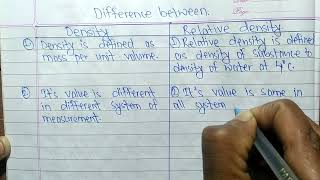 Difference between.
Density
Relative density
1) Density is defined as
mass per unit volume.
1) Relative density is defined
as density of substance to
density of water at 4°C.
2) It's value is different
in different system of
measurement.
2) It's value is same in
all system